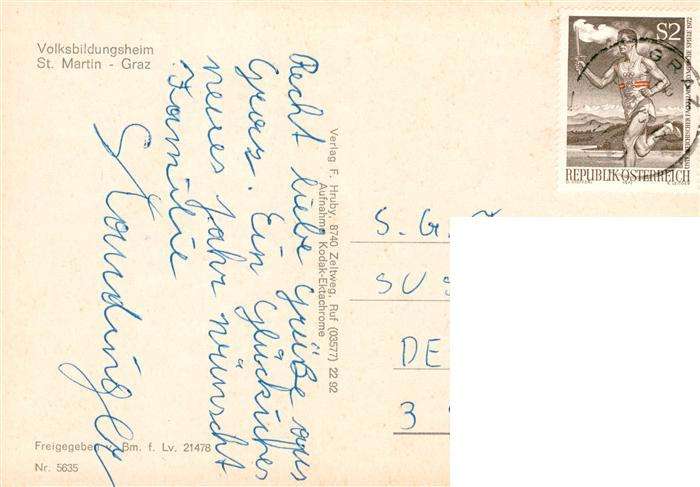 Volksbildungsheim
St. Martin - Graz
Recht liebe Grüße aus
Graz. Ein glückliches
neues Jahr wünscht
Familie
Verlag F. Hruby, 8740 Zeltweg, Ruf (03577) 22 92
Aufnahme Kodak-Ektachrome
Freigegeben v. Bm. f. Lv. 21478
Nr. 5635
S2
OLYMPISCHE SPIELE 1972
REPUBLIK ÖSTERREICH
S. G.
SUS
DE
3